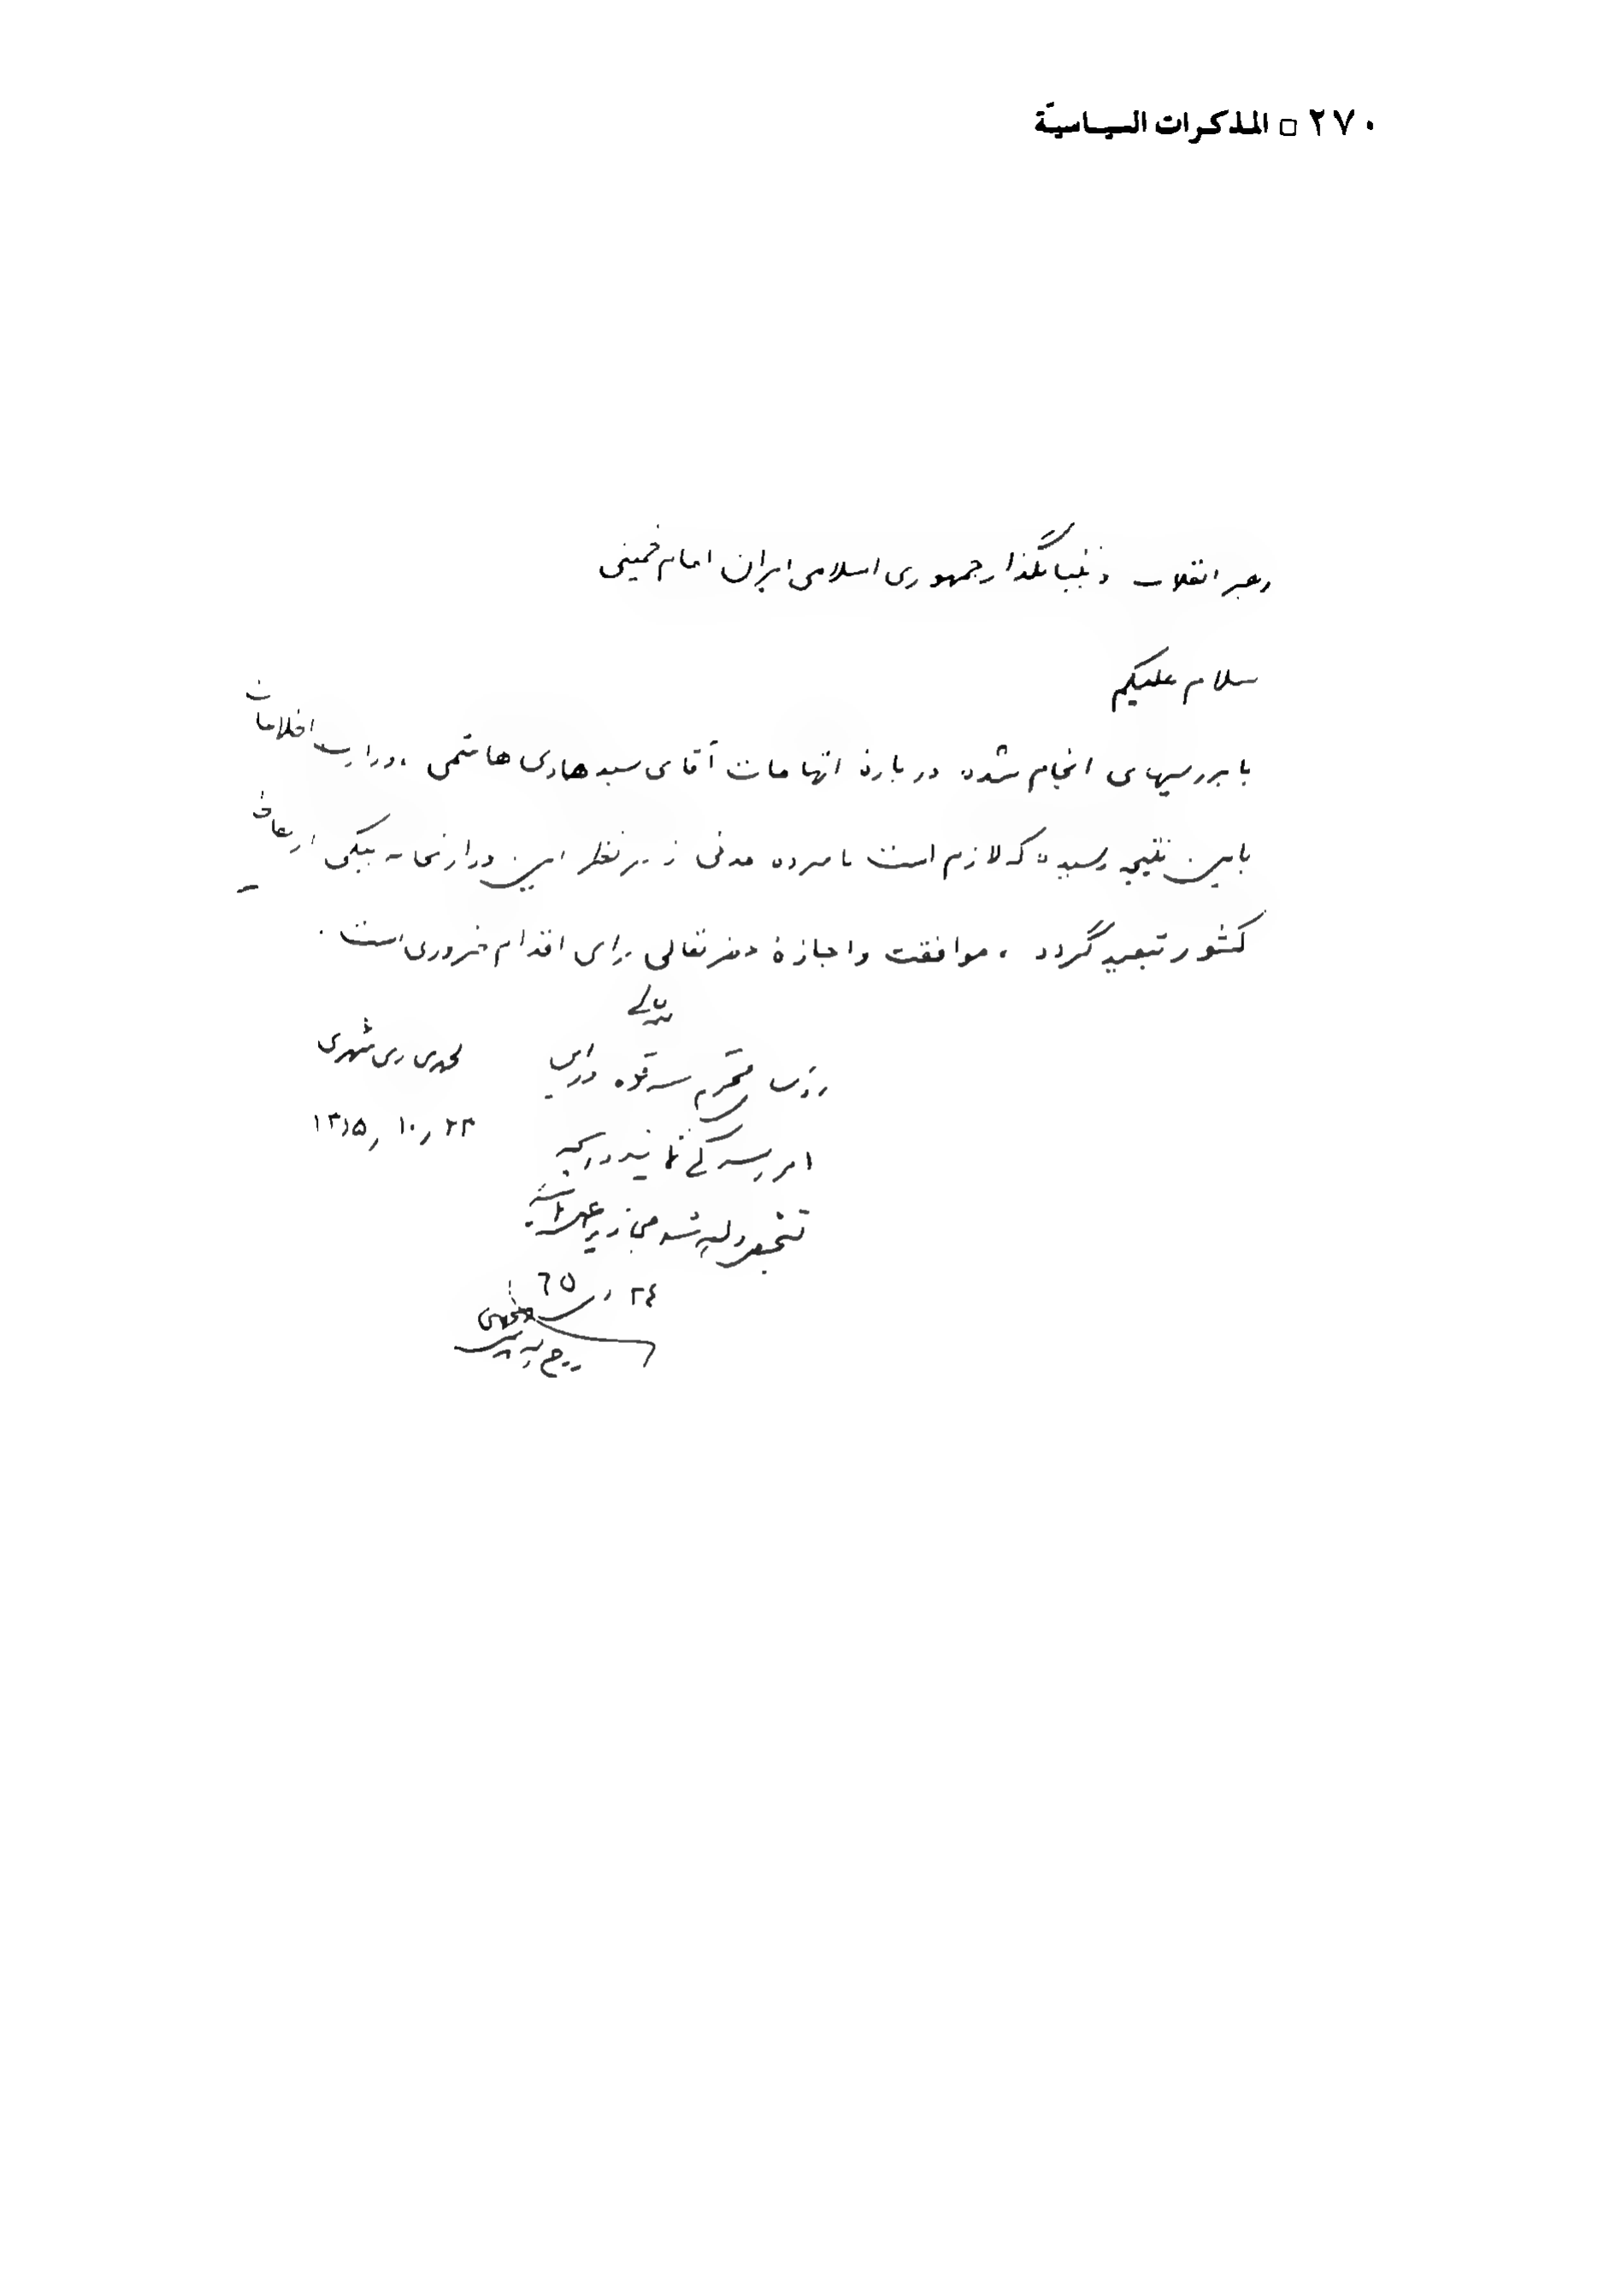 ٢٧٠ □ المذكرات السياسيّة
رهبر انقلاب و بنیانگذار جمهوری اسلامی ایران امام خمینی
سلام علیکم
با بررسیهای انجام شده درباره اتهامات آقای سید هادی هاشمی، وزارت اطلاعات
باین نتیجه رسیده که لازم است نامبرده مدتی زیر نظر این وزارتخانه بیکی از نقاط
کشور تبعید گردد، موافقت و اجازهٔ حضرتعالی برای اقدام ضروری است.
محمدی ری شهری
بسمه تعالی
محترم سه قوه
۱۳۶۵٫۱۰٫۲۳
امر رسیدگی نمایند
تشخیص داده شد مجازید
٢٤ ٦٥
روح الله الموسوی الخمینی